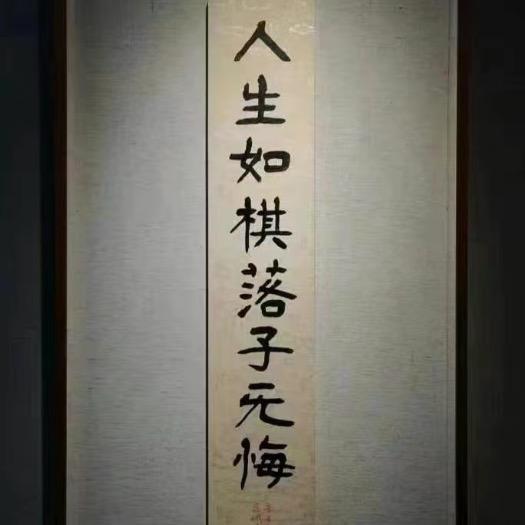 人生如棋落子无悔